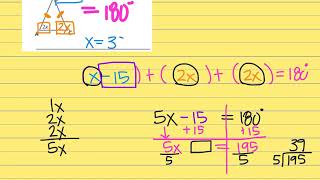 = 180°
2x 2x
x = 3
(x - 15) + (2x) + (2x) = 180
1x
2x
2x
5x
5x - 15 = 180°
+15 +15
5x = 195
5 5
39
5)195